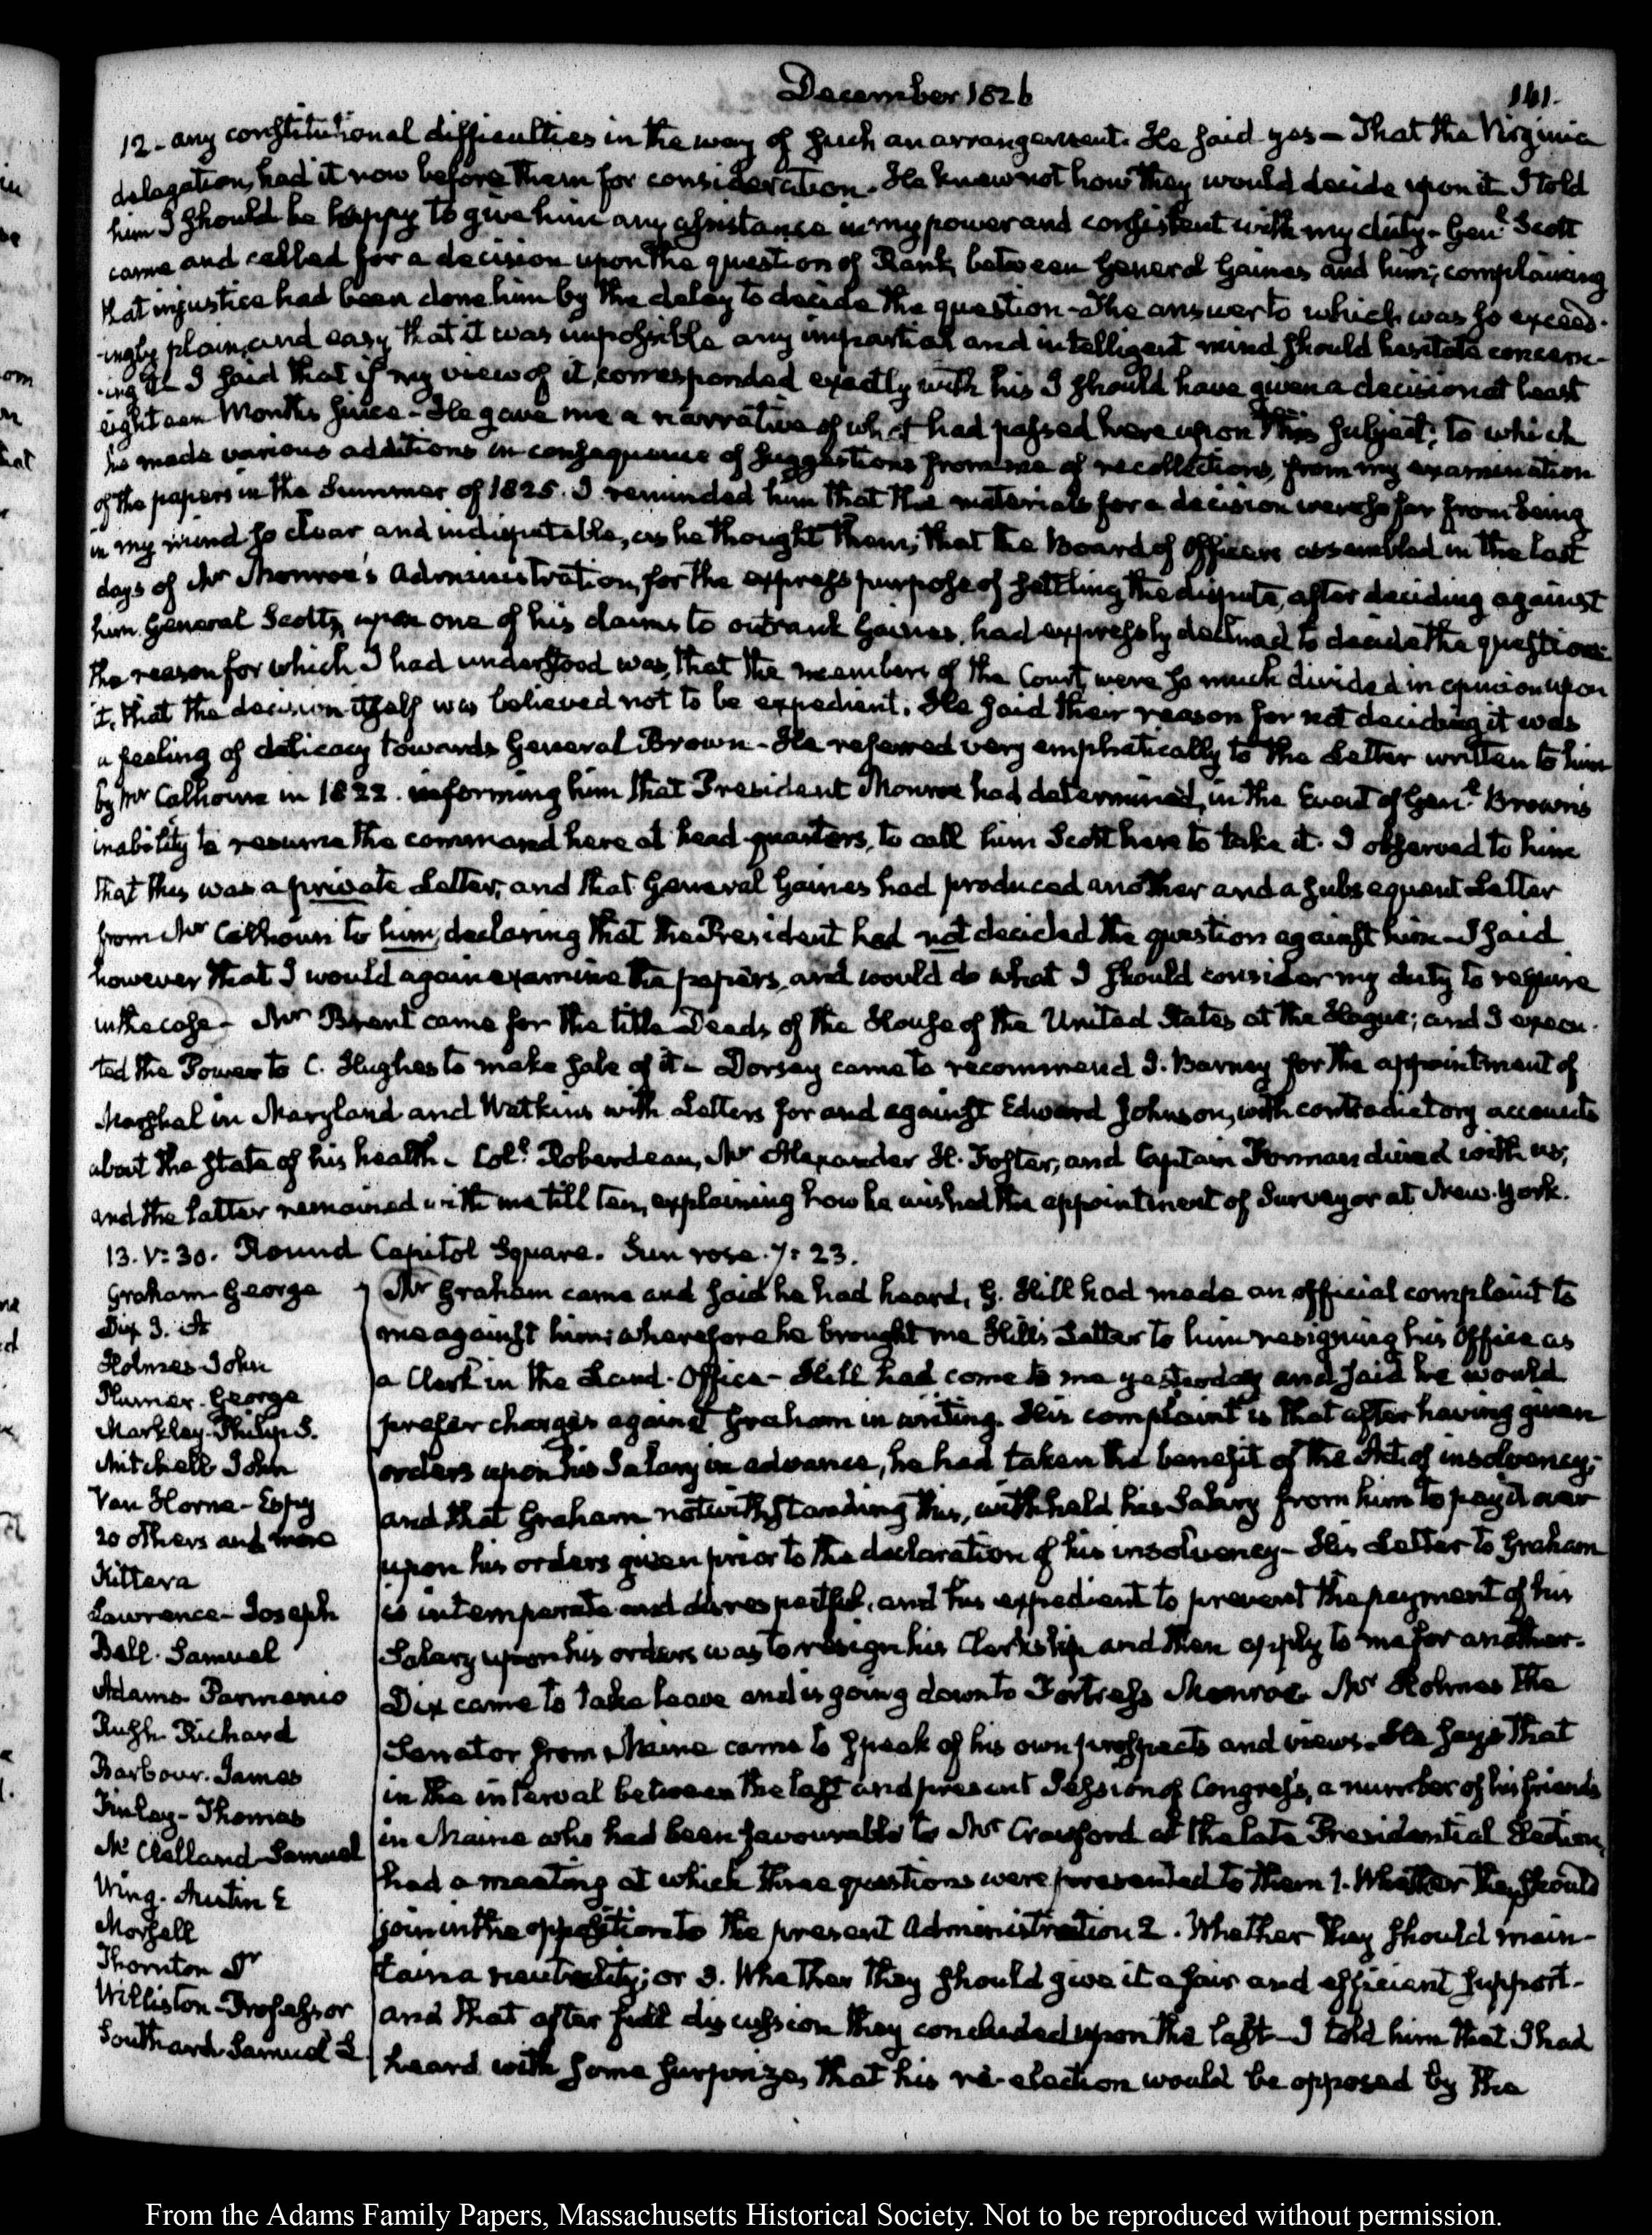 December 1826
161.
12 - any constitutional difficulties in the way of such an arrangement. He said yes — That the Virginia
delegation, had it now before them for consideration. He knew not how they would decide upon it. I told
him I should be happy to give him any assistance in my power and consistent with my duty - Genl. Scott
came and called for a decision upon the question of Rank, between General Gaines and him; complaining
that injustice had been done him by the delay to decide the question - The answer to which was so exceed-
-ingly plain, and easy that it was impossible any impartial and intelligent mind should hesitate concern-
-ing it - I said that if my view of it, corresponded exactly with his I should have given a decision at least
eighteen Months since - He gave me a narrative of what had passed here upon this subject; to which
he made various additions in consequence of suggestions from me of recollections, from my examination
of the papers in the Summer of 1825. I reminded him that the materials for a decision were so far from being
in my mind so clear and indisputable, as he thought them, that the Board of Officers assembled in the last
days of Mr Monroe's Administration, for the express purpose of settling the dispute, after deciding against
him General Scott, upon one of his claims to outrank Gaines, had expressly declined to decide the question:
the reason for which I had understood was, that the members of the Court were so much divided in opinion upon
it, that the decision itself was believed not to be expedient. He said their reason for not deciding it was
a feeling of delicacy towards General Brown - He referred very emphatically to the Letter written to him
by Mr Calhoun in 1822. informing him that President Monroe had determined, in the Event of Genl. Brown's
inability to resume the command here at head-quarters, to call him Scott here to take it. I observed to him
that this was a private Letter, and that General Gaines had produced another and a subsequent Letter
from Mr Calhoun to him, declaring that the President had not decided the question against him - I said
however that I would again examine the papers, and would do what I should consider my duty to require
in the case - Mr Brent came for the title Deeds of the House of the United States at the Hague; and I execu-
ted the Power to C. Hughes to make sale of it - Dorsey came to recommend J. Barney for the appointment of
Marshal in Maryland and Watkins with Letters for and against Edward Johnson, with contradictory accounts
about the state of his health - Coll. Roberdeau, Mr Alexander H. Foster, and Captain Forman dined with us,
and the latter remained with me till ten, explaining how he wished the appointment of Surveyor at New-York.
13. V: 30. Round Capitol Square. Sun rose. 7: 23.
Graham George
Dix J. A
Holmes John
Plumer. George
Markley. Philip S.
Mitchell John
Van Horne - Espy
20 others and more
Kittera
Lawrence - Joseph
Ball. Samuel
Adams Parmenio
Rush Richard
Barbour. James
Finlay - Thomas
McClelland Samuel
Wing. Austin E
Morsell
Thornton Dr
Williston - Professor
Southard Samuel L
Mr Graham came and said he had heard, G. Hill had made an official complaint to
me against him; wherefore he brought me Hill's Letter to him resigning his Office as
a Clerk in the Land-Office - Hill had come to me yesterday and said he would
prefer charges against Graham in writing. His complaint is that after having given
orders upon his Salary in advance, he had taken the benefit of the Act of insolvency;
and that Graham notwithstanding this, withheld his Salary from him to pay it over
upon his orders given prior to the declaration of his insolvency - His Letter to Graham
is intemperate and disrespectful, and his expedient to prevent the payment of his
Salary upon his orders was to resign his Clerkship and then apply to me for another.
Dix came to take leave and is going down to Fortress Monroe. Mr Holmes the
Senator from Maine came to speak of his own prospects and views. He says that
in the interval between the last and present Session of Congress, a number of his friends
in Maine who had been favourable to Mr Crawford at the late Presidential Election,
had a meeting at which three questions were presented to them 1. Whether they should
join in the opposition to the present Administration 2. Whether they should main-
tain a neutrality; or 3. Whether they should give it a fair and efficient support -
and that after full discussion they concluded upon the last - I told him that I had
heard with some surprize, that his re-election would be opposed by the
From the Adams Family Papers, Massachusetts Historical Society. Not to be reproduced without permission.